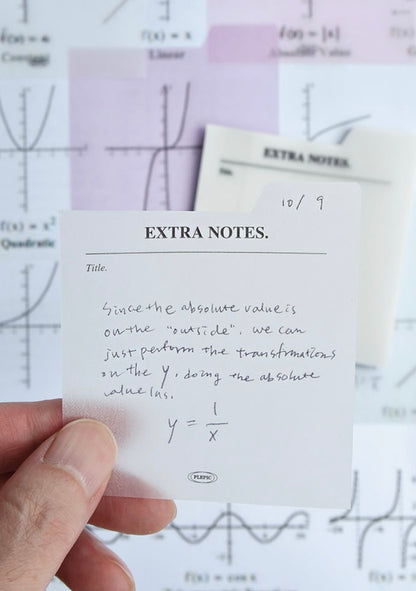 f(x) = x
f(x) = |x|
Constant
Linear
Absolute Value
EXTRA NOTES.
Title.
10/9
EXTRA NOTES.
f(x) = x²
Quadratic
Title.
Since the absolute value is
on the "outside", we can
just perform the transformations
on the y, doing the absolute
value las.
y = 1/x
PLEPIC
f(x) = cos x